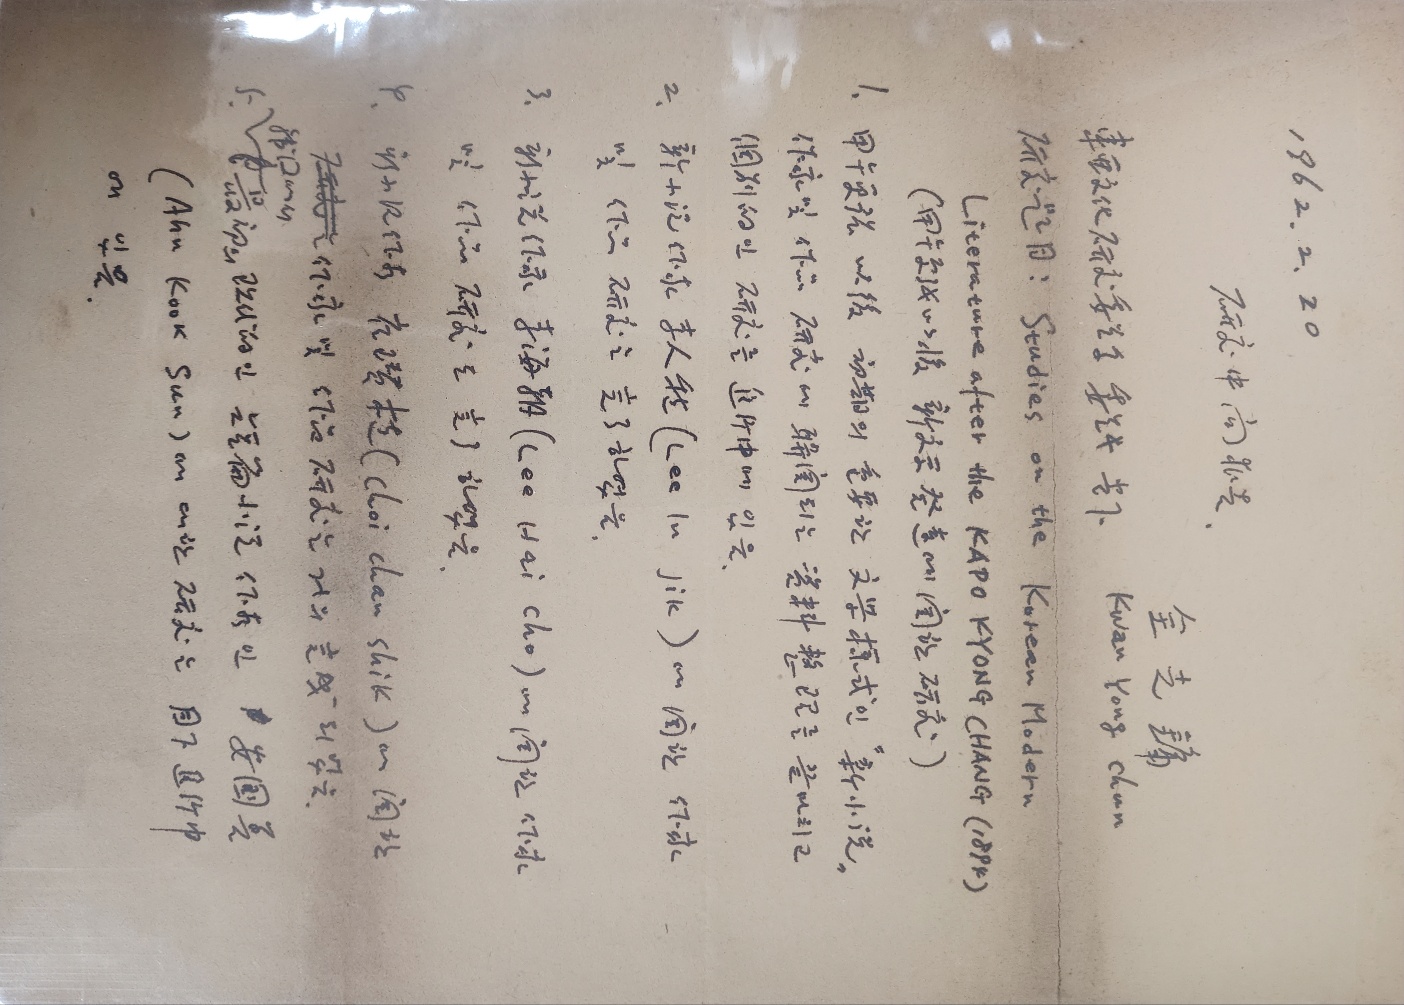 1962. 2. 20
研究中間報告.
全光鏞
東亞文化研究委員會 委員長 貴下
Kwan Yong Chun
研究題目: Studies on the Korean Modern
Literature after the KAPO KYONG CHANG (1894)
(甲午更張以後 新文學發達에 關한 研究)
1. 甲午更張 以後 初期의 重要한 文學樣式인 "新小說"
作家 및 作品 研究에 關聯되는 資料整理를 끝마치고
個別的인 研究를 進行中에 있음.
2. 新小說作家 李人稙(Lee In jik)에 關한 作家
및 作品 研究는 完了하였음.
3. 新小說作家 李海朝(Lee Hai Cho)에 關한 作家
및 作品 研究도 完了하였음.
4. 新小說作家 崔瓚植(Choi chan shik)에 關한
作家 및 作品 研究는 거의 完成되었음.
5. 開化期의 政治的인 小說作家인 安國善
(Ahn Kook Sun)에 對한 研究는 目下 進行中
에 있음.